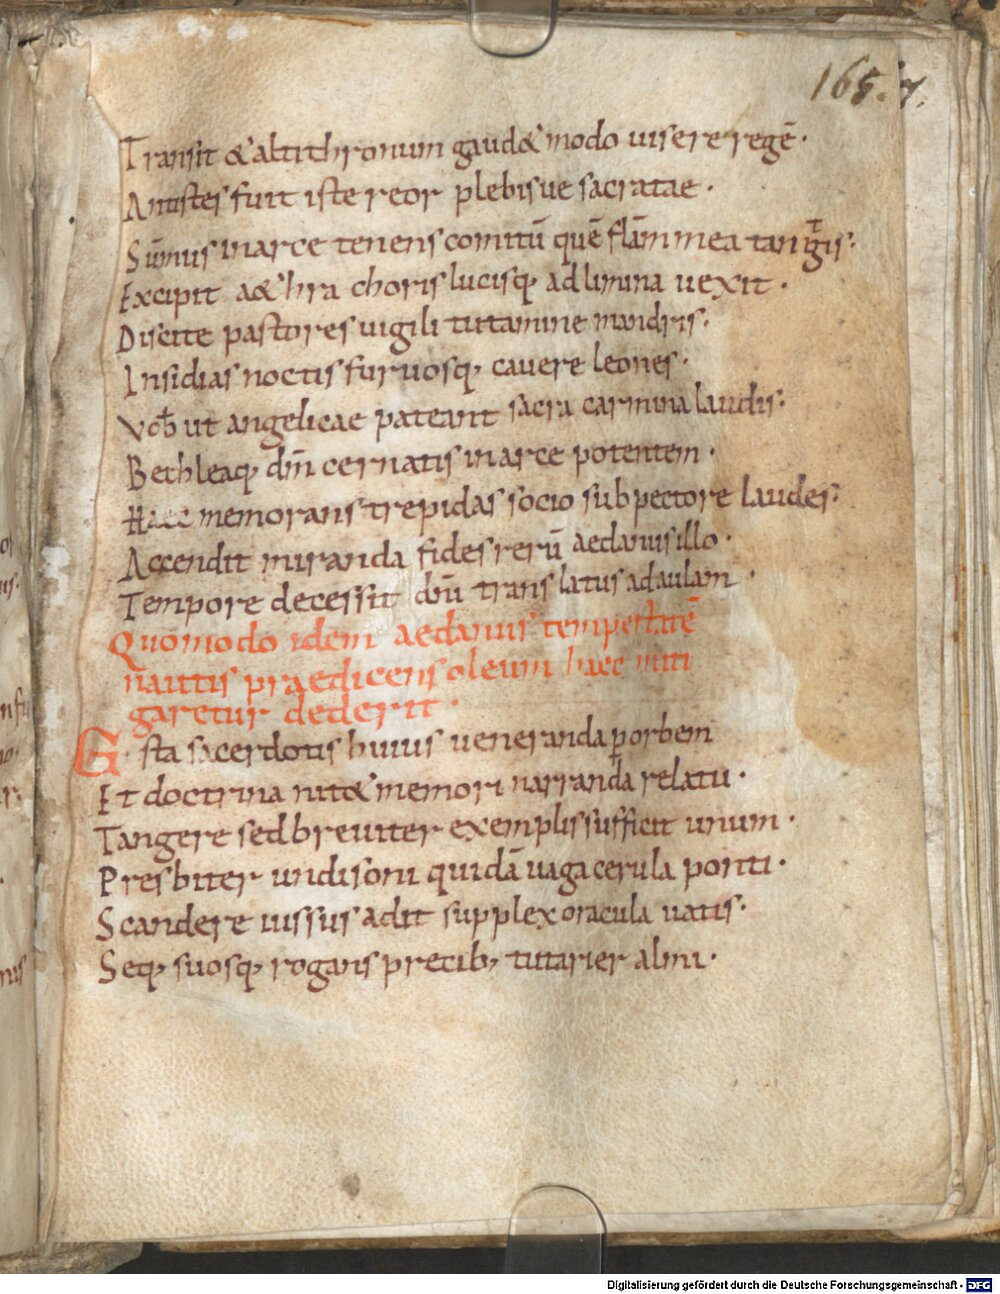 165. 7.
Transit &altithronum gaud& modo uisere regē·
Antistes fuit iste reor plebisue sacratae·
Sūmus inarce tenens comitū quē flāmmea tangis·
Excipit a&hra choris lucisq; adlimina uexit·
Discite pastores uigili tutamine mandris·
Insidias noctis furuosq; cauere leones·
Vob ut angelicae pateant sacra carmina laudis·
Bethleaq; dn̄m cernatis inarce potentem·
Haec memorans trepidas socio subpectore laudes·
Accendit miranda fides rerū aedanus illo·
Tempore decessit dn̄i translatus adaulam·
Quomodo idem aedanus tempestatē
nautis praedicens oleum haec miti
garetur dederit·
G&sta sacerdotis huius ueneranda porbem
Et doctrina nit& memori narranda relatu·
Tangere sedbreuiter exemplis sufficit unum·
Presbiter undisoni quidā uaga cerula ponti·
Scandere iussus adit supplex oracula uatis·
Seq; suosq; rogans precib; tutarier almi·
Digitalisierung gefördert durch die Deutsche Forschungsgemeinschaft - DFG